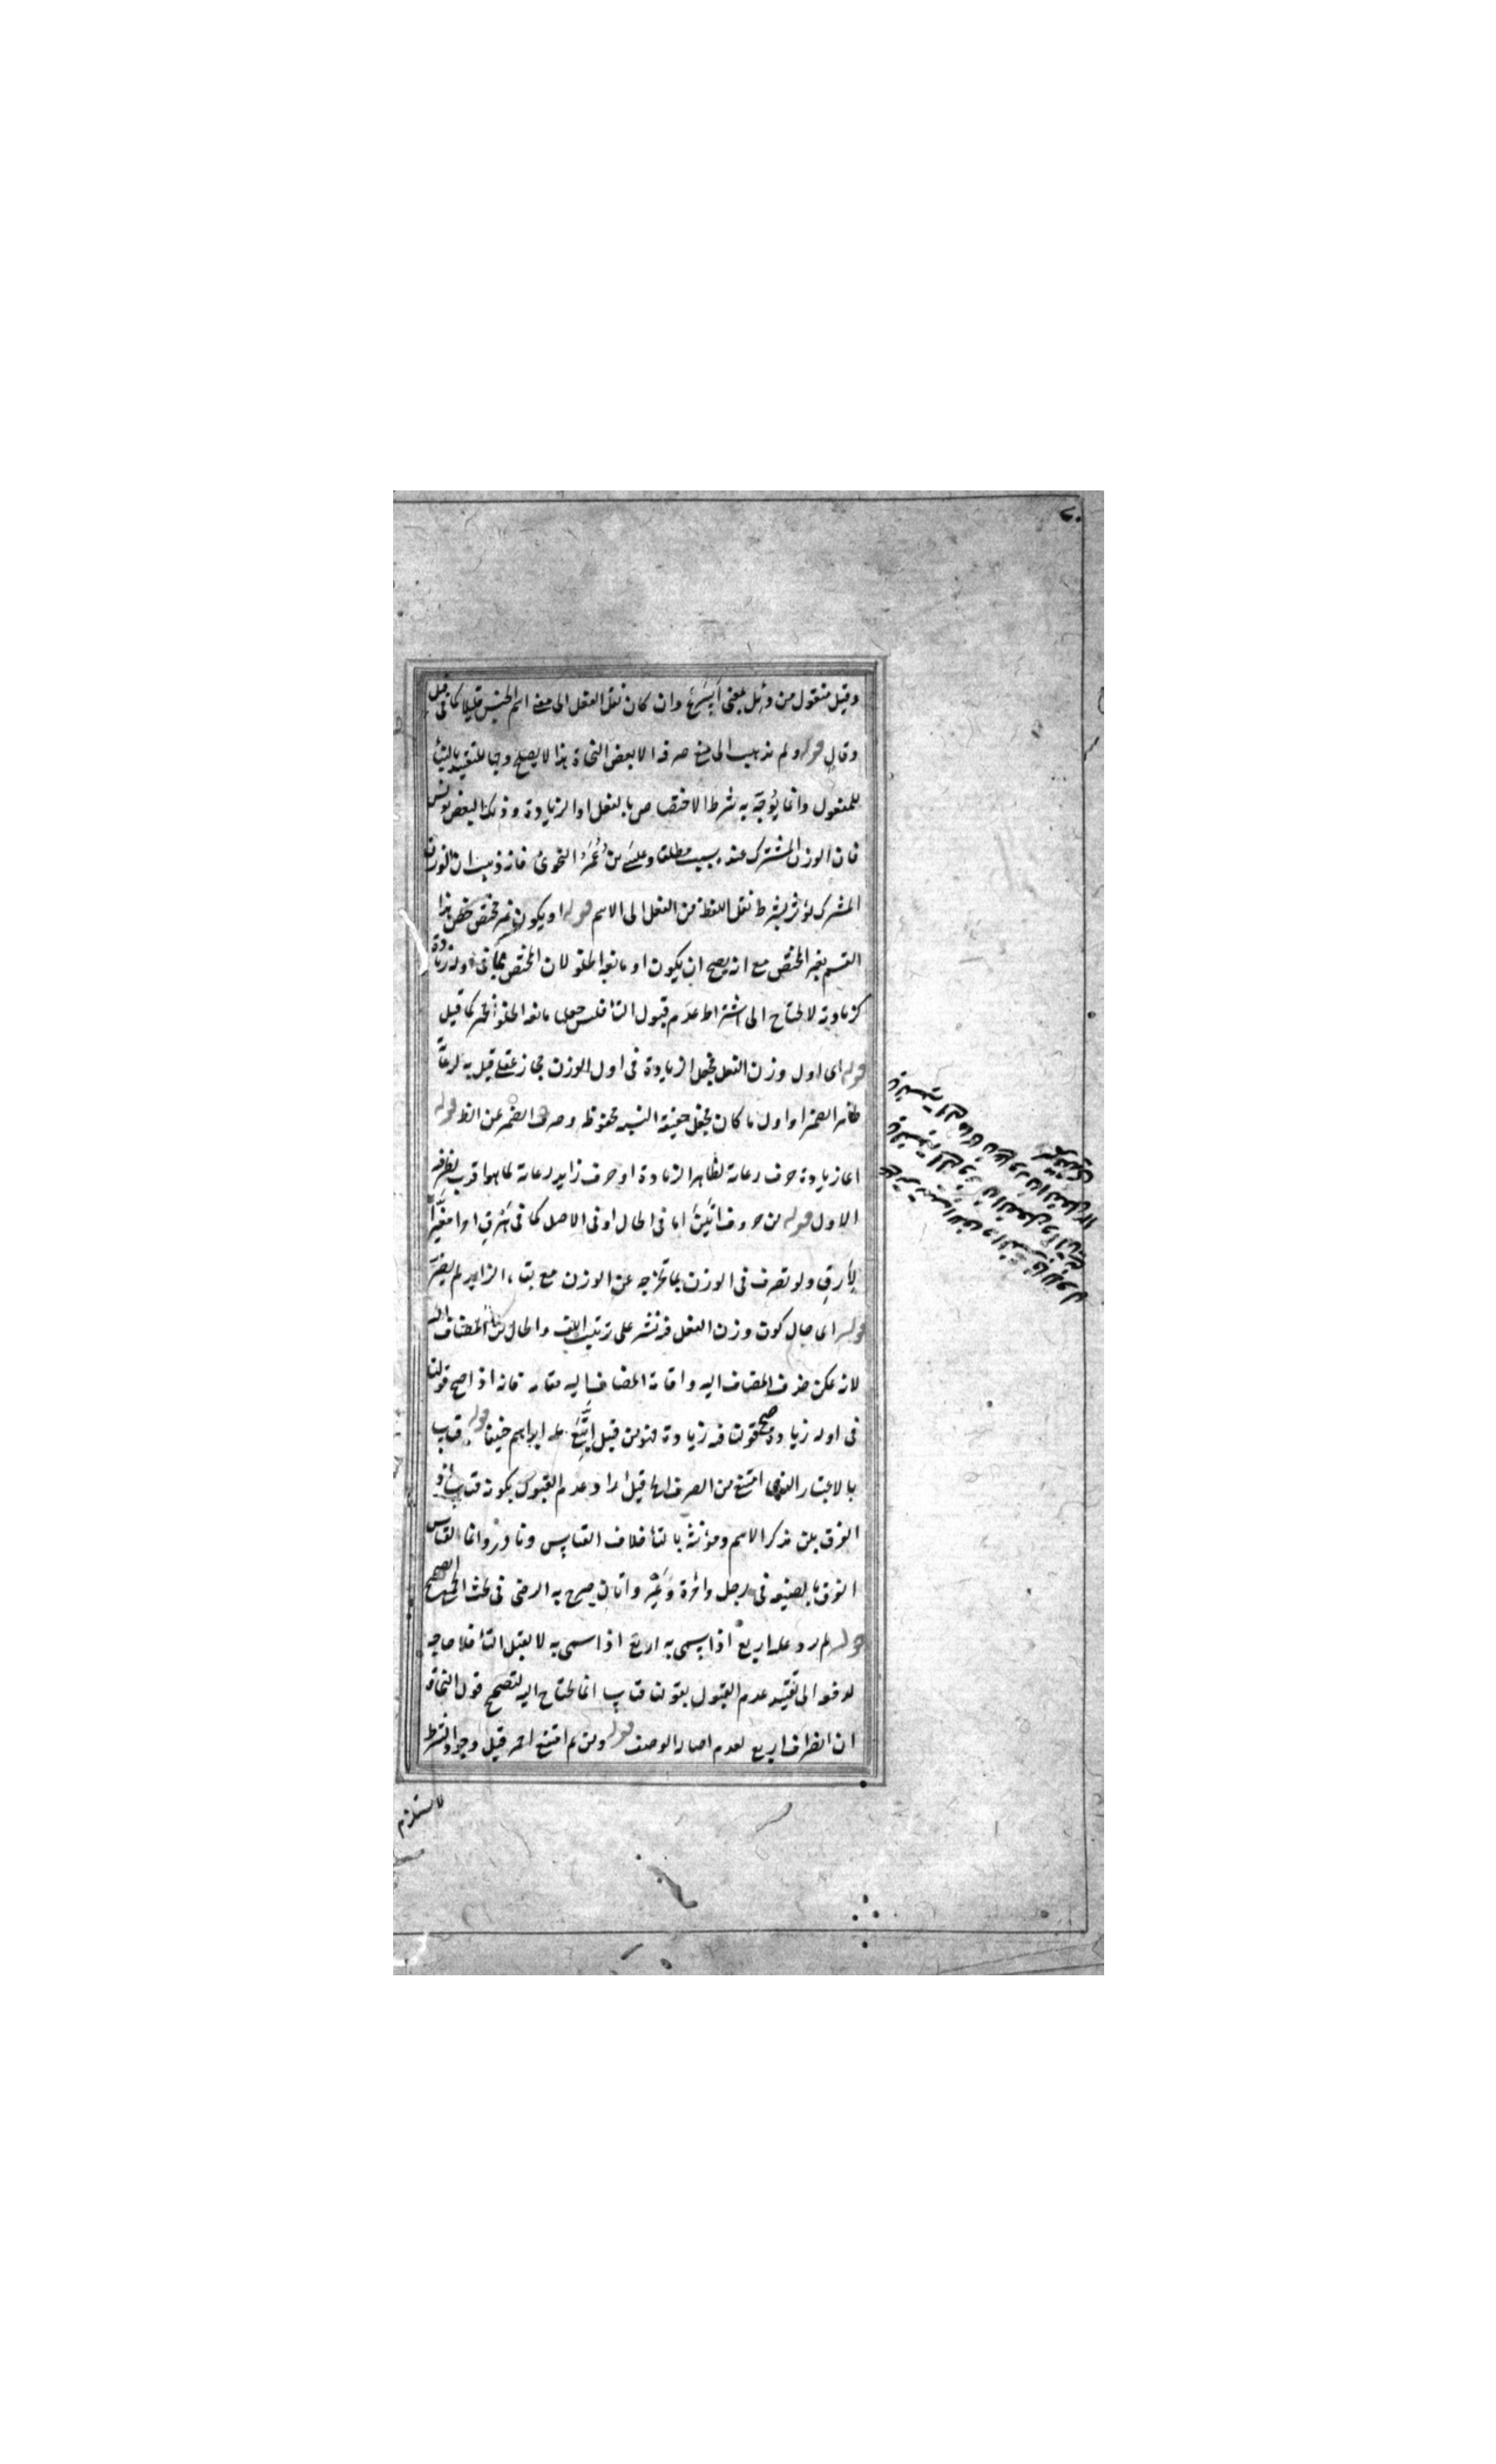 وقيل منقول من وئل بمعنى أيسرع وان كان نقل الفعل الى معنى اسم الجنس قليلا كما في قيل
وقال قوله ولم يذهب الى منع صرفه الا بعض النحاة هذا لا يصلح وجها للتقييد بالبناء
للمفعول وانما يوجّه به شرط الاختصاص بالفعل او الزيادة وذلك البعض يونس
فان الوزن المشترك عنده سبب مطلقا وعيسى بن عمر النحوى فانه ذهب ان الوزن
المشترك يؤثر بشرط نقل اللفظ من الفعل الى الاسم قوله او يكون غير مختص خص هذا
القسم بغير المختص مع انه يصح ان يكون او مانعة الخلو لان المختص بما في اوله زيادة
كزيادته لا يحتاج الى اشتراط عدم قبول التاء فليس جعل مانعة الخلو
قوله اى اول وزن الفعل فجعل الزيادة في اول الوزن مجاز عقلى قيل به لرعاية
ظاهر الضمير او اول ما كان فجعل حقيقة النسبة محفوظة وصرف الضمير عن الظ قوله
اى زيادة حرف رعاية لظاهر الزيادة او حرف زايد رعاية لما هو اقرب بظرفه
الاول قوله من حروف اتين اما فى الحال او فى الاصل كما فى
لأرق ولو تصرف فى الوزن بما تخرجه عن الوزن مع بقاء الزايد لم يضر
قوله اى حال كون وزن الفعل فد نشر على ترتيب اللف والحال من المضاف اليه
لانه يمكن حذف المضاف اليه واقامة المضاف اليه مقامه فانه اذا صح قولنا
فى اوله زيادة صح قولنا فيه زيادة فهو من قبيل اتبع ملة ابراهيم حنيفا قوله قياسا
بالاعتبار الذى امتنع من الصرف لاجله قيل اراد عدم القبول بكونه قياسا
الفرق بين مذكر الاسم ومؤنثه بالتاء خلاف القياس ونادر وانما القياس
الفرق بالصيغة فى رجل وامرأة وعير واتان صرح به الرضى فى بحث الجمع الصحيح
قوله لم يرد عليه اربع اذا سمى به اربع اذا سمى به لا يقبل التاء فلا حاجة
لدفعه الى تقييد عدم القبول بقوله قياسا انما يحتاج اليه لتصحيح قول النحاة
ان انصراف اربع لعدم اصالة الوصف قوله ومن ثم امتنع احمر قيل وجود الشرط
لا يستلزم